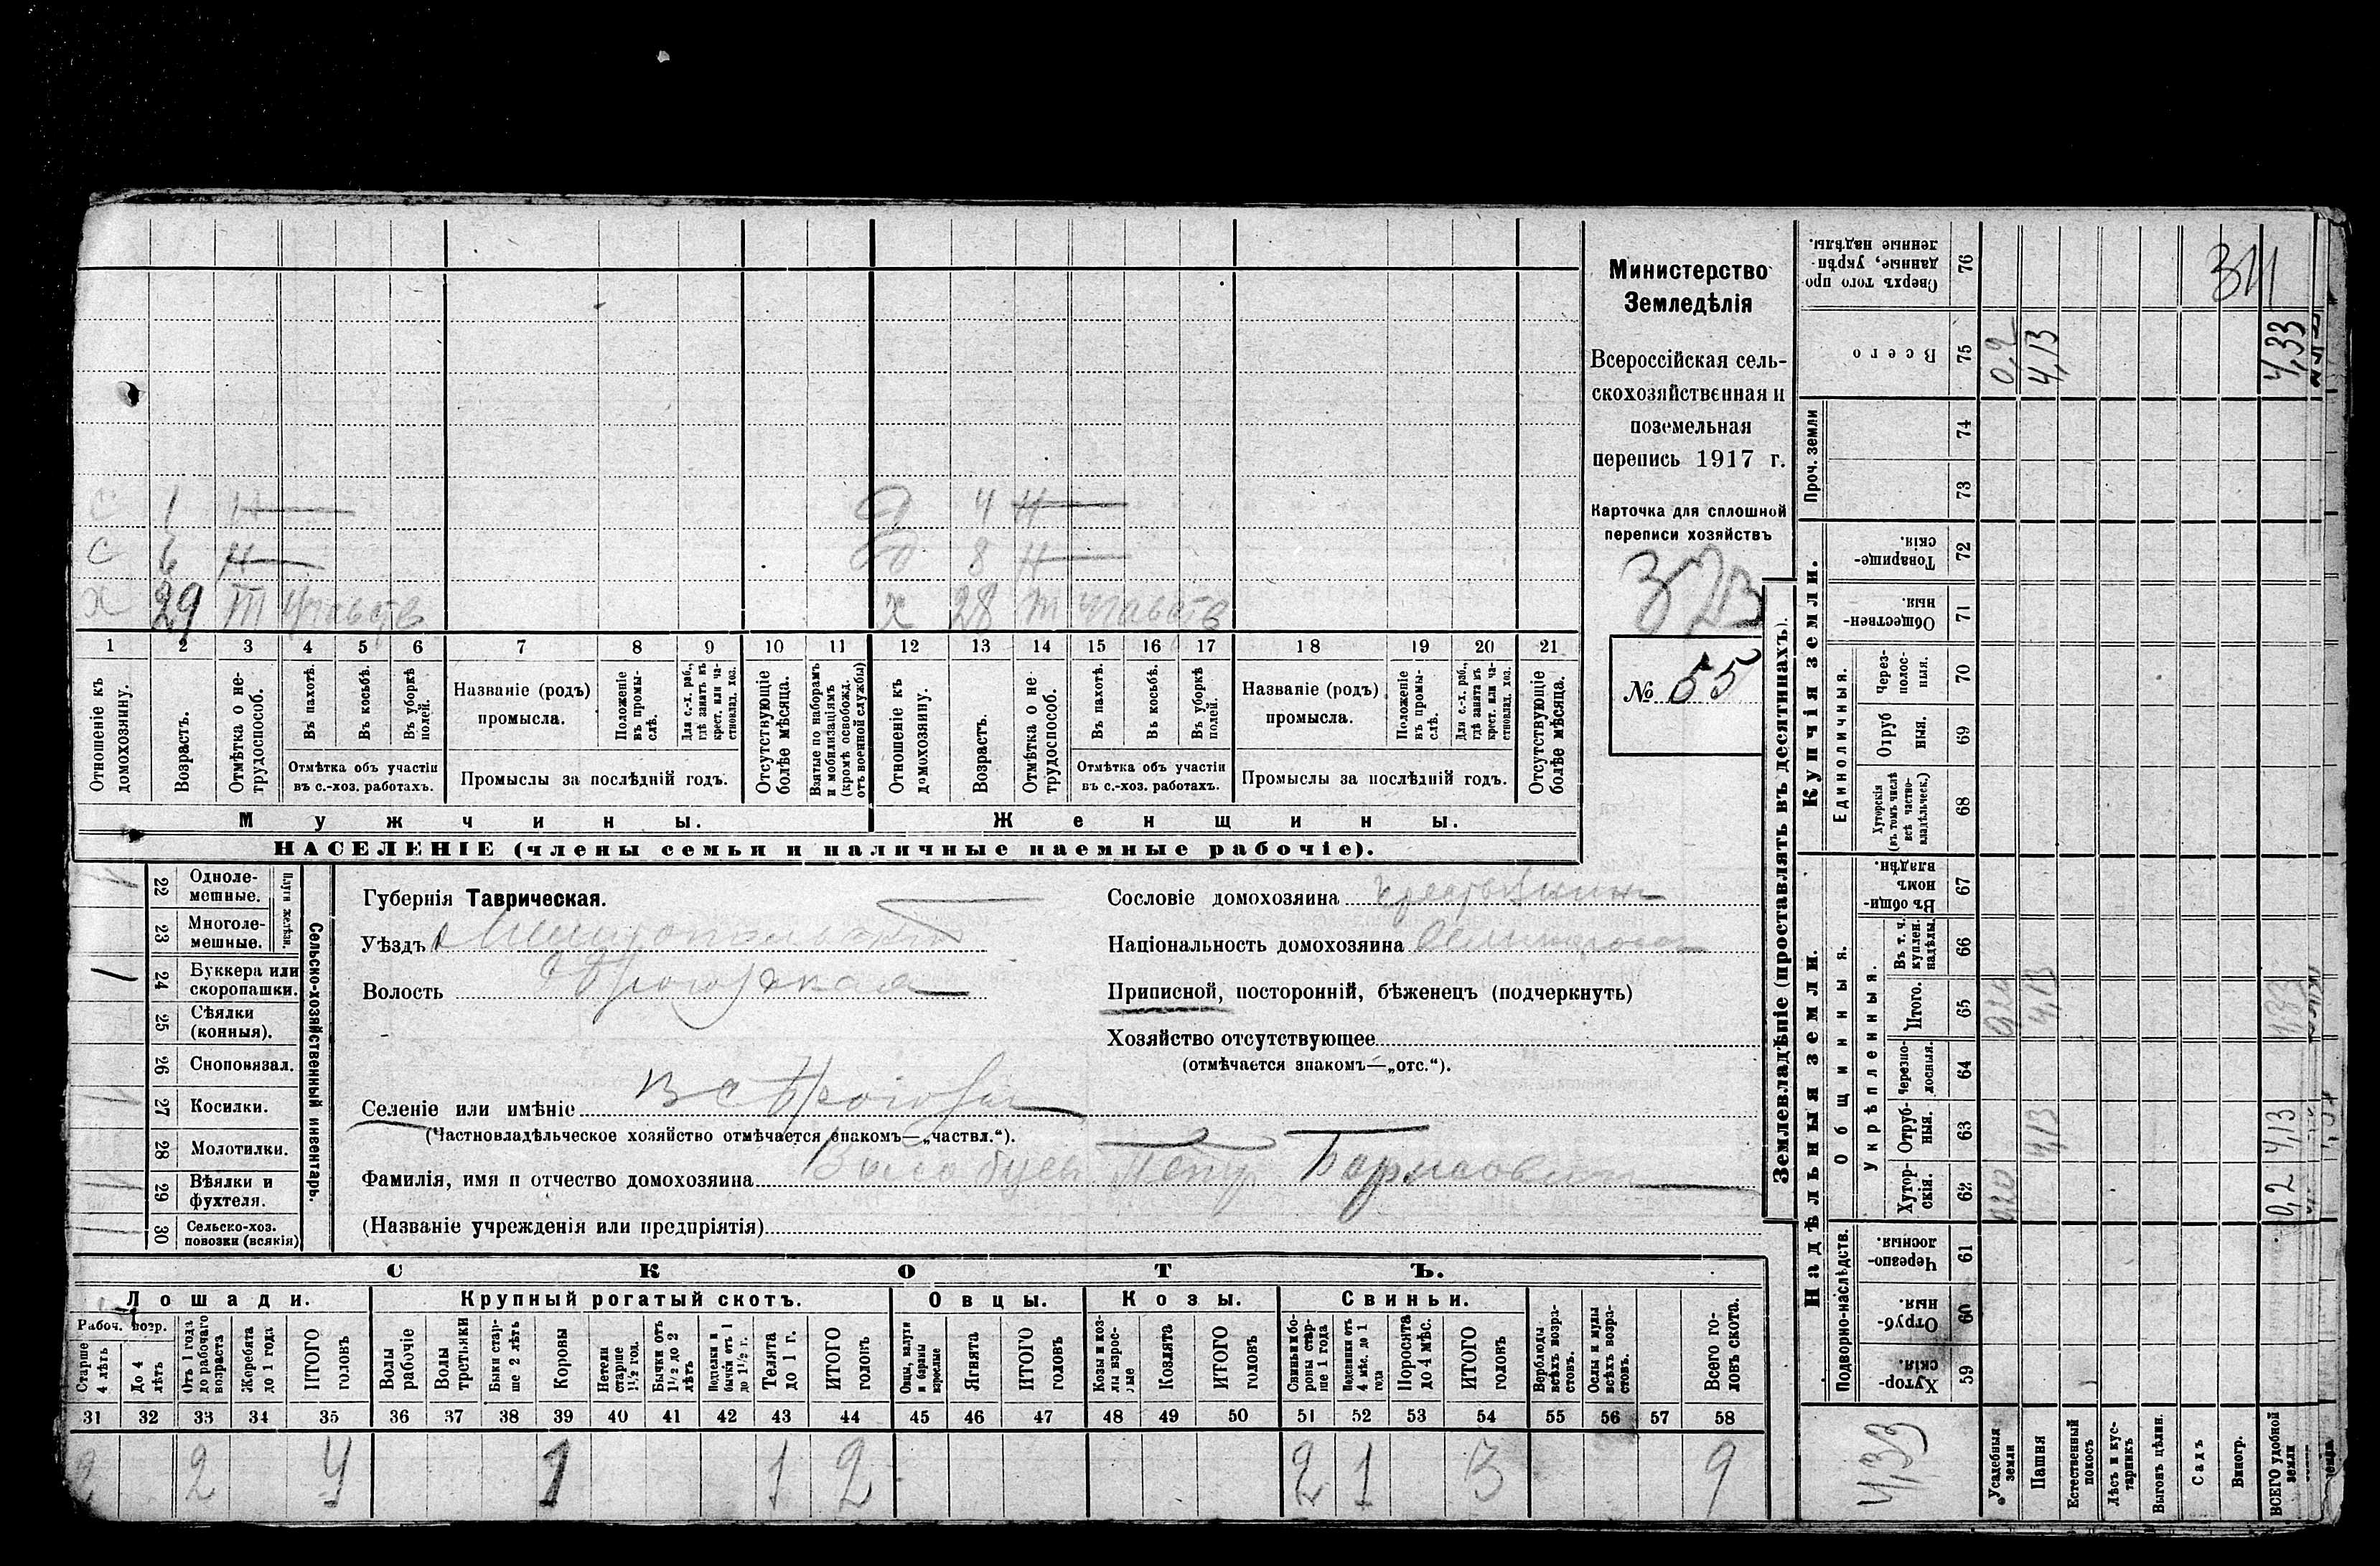 Министерство
Земледѣлія
Всероссійская сель-
скохозяйственная и
поземельная
перепись 1917 г.
Карточка для сплошной
переписи хозяйствъ
323
№ 55
с 1 н
с 6 н
х 29 т участв
д 4 н
д 8 н
х 28 т участв
1 2 3 4 5 6 7 8 9 10 11 12 13 14 15 16 17 18 19 20 21
Отношеніе къ домохозяину.
Возрастъ.
Отмѣтка о не-трудоспособ.
Въ пахотѣ.
Въ косьбѣ.
Въ уборкѣ полей.
Отмѣтка объ участіи
въ с.-хоз. работахъ.
Названіе (родъ)
промысла.
Положеніе въ промы-слѣ.
Для с.-х. раб., гдѣ занятъ въ крест. или ча-стновлад. хоз.
Промыслы за послѣдній годъ.
Отсутствующіе болѣе мѣсяца.
Взятые по наборамъ и мобилизаціямъ (кромѣ освобожд. отъ военной службы)
Отношеніе къ домохозяину.
Возрастъ.
Отмѣтка о не-трудоспособ.
Въ пахотѣ.
Въ косьбѣ.
Въ уборкѣ полей.
Отмѣтка объ участіи
въ с.-хоз. работахъ.
Названіе (родъ)
промысла.
Положеніе въ промы-слѣ.
Для с.-х. раб., гдѣ занята въ крест. или ча-стновлад. хоз.
Промыслы за послѣдній годъ.
Отсутствующіе болѣе мѣсяца.
Мужчины.
Женщины.
НАСЕЛЕНІЕ (члены семьи и наличные наемные рабочіе).
22 Одноле-мешные.
23 Многоле-мешные.
Плуги желѣзн.
24 Буккера или скоропашки.
25 Сѣялки (конныя).
26 Сноповязал.
27 Косилки.
28 Молотилки.
29 Вѣялки и фухтеля.
30 Сельско-хоз. повозки (всякія)
Сельско-хозяйственный инвентарь.
Губернія Таврическая.
Уѣздъ Мелитопольскій
Волость
Селеніе или имѣніе
(Частновладѣльческое хозяйство отмѣчается знакомъ—„частвл.“).
Фамилія, имя и отчество домохозяина Петр Борисович
(Названіе учрежденія или предпріятія)
Сословіе домохозяина крестьянин
Національность домохозяина
Приписной, посторонній, бѣженецъ (подчеркнуть)
Хозяйство отсутствующее
(отмѣчается знакомъ—„отс.“).
СКОТЪ.
Лошади. Крупный рогатый скотъ. Овцы. Козы. Свиньи.
Рабоч. возр.
Старше 4 лѣтъ
До 4 лѣтъ
Отъ 1 года до рабочаго возраста
Жеребята до 1 года
ИТОГО головъ
Волы рабочіе
Волы третьяки
Быки стар-ше 2 лѣтъ
Коровы
Нетели старше 1½ год.
Бычки отъ 1½ до 2 лѣтъ
Подтелки и бычки отъ 1 до 1½ г.
Телята до 1 г.
ИТОГО головъ
Овцы, валухи и бараны взрослые
Ягнята
ИТОГО головъ
Козы и коз-лы взрос-лые
Козлята
ИТОГО головъ
Свиньи и бо-ровы стар-ше 1 года
Подсвинки отъ 4 мѣс. до 1 года
Поросята до 4 мѣс.
ИТОГО головъ
Верблюды всѣхъ возра-стовъ.
Ослы и мулы всѣхъ возра-стовъ.
Всего го-ловъ скота.
31 32 33 34 35 36 37 38 39 40 41 42 43 44 45 46 47 48 49 50 51 52 53 54 55 56 57 58
2 2 4 1 1 2 2 1 3 9
Землевладѣніе (проставлять въ десятинахъ).
Надѣльныя земли.
Купчія земли.
Проч. земли
Подворно-наслѣдств.
Общинныя.
Укрѣпленныя.
Единоличныя.
59 Хутор-скія.
60 Отруб-ныя.
61 Черезпо-лосныя.
62 Хутор-скія.
63 Отруб-ныя.
64 Черезпо-лосныя.
65 Итого.
66 Въ т. ч. куплен. надѣлы.
67 Въ общи-номъ владѣн.
68 Хуторскія (въ томъ числѣ всѣ частно-владѣльческ.)
69 Отруб ныя.
70 Через-полос-ныя.
71 Обществен-ныя.
72 Товарище-скія.
73
74
75 Всего
76 Сверхъ того про данные, укрѣп-ленные надѣлы.
4,33
Усадебныя земли 0,20 0,20 0,2
Пашня 4,13 4,13 4,13
Естественный покосъ
Лѣсъ и кус-тарникъ
Выгонъ цѣлин.
Садъ
Виногр.
ВСЕГО удобной земли 0,2 4,13 4,33 4,33
311